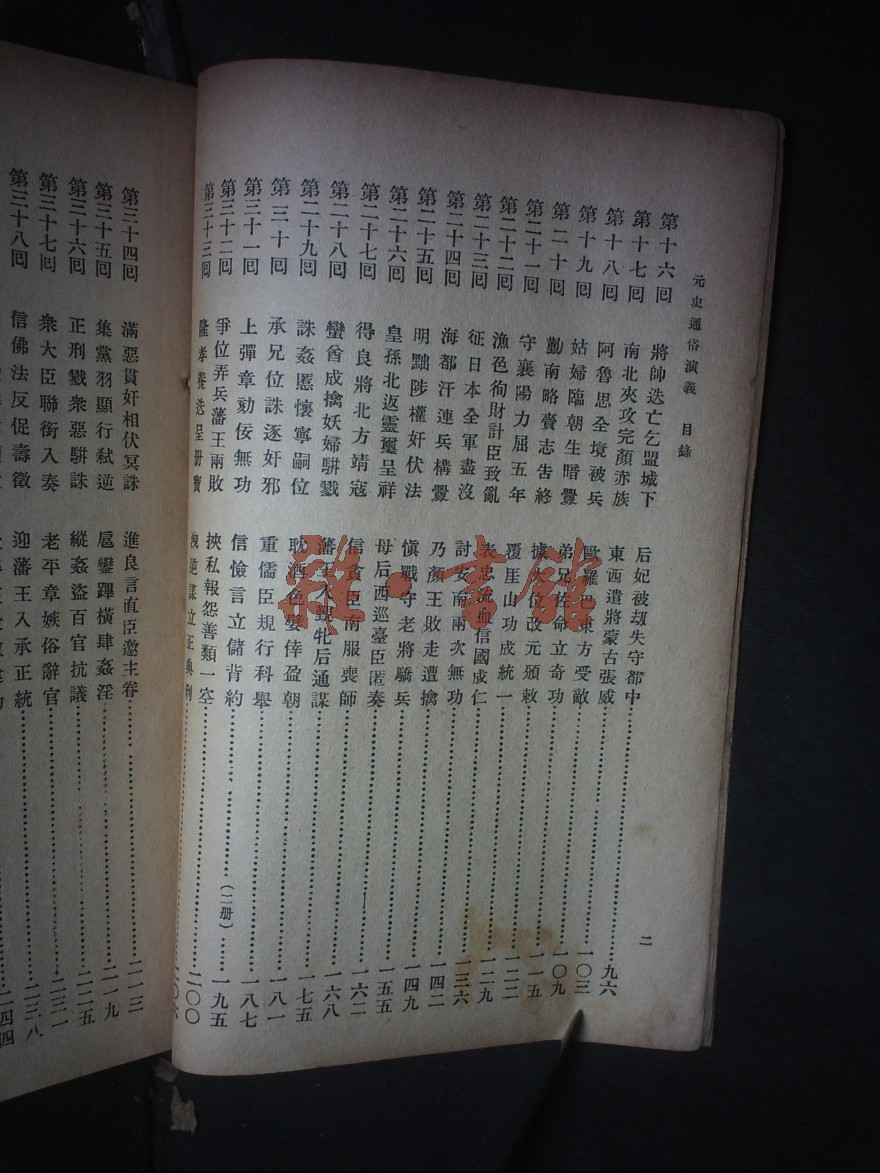 元史通俗演義　目錄　二
第十六回　將帥迭亡乞盟城下　后妃被刼失守都中……九六
第十七回　南北夾攻完顏赤族　東西遣將蒙古張威……一〇三
第十八回　阿魯思全境被兵　歐羅巴東方受敵……一〇九
第十九回　姑婦臨朝生暗釁　弟兄佐命立奇功……一一五
第二十回　勤南略齎志告終　據大位改元頒敕……一二二
第二十一回　守襄陽力屈五年　覆厓山功成統一……一二九
第二十二回　漁色徇財計臣致亂　表忠流血信國成仁……一三六
第二十三回　征日本全軍盡沒　討安南兩次無功……一四二
第二十四回　海都汗連兵構釁　乃顏王敗走遭擒……一四九
第二十五回　明黜陟權奸伏法　愼戰守老將驕兵……一五五
第二十六回　皇孫北返靈璽呈祥　母后西巡臺臣匿奏……一六二
第二十七回　得良將北方靖寇　信貪臣南服喪師……一六八
第二十八回　蠻酋成擒妖婦駢戮　藩王入覲牝后通謀……一七五
第二十九回　誅姦慝懷寧嗣位　耽酒色嬖倖盈朝……一八一
第三十回　承兄位誅逐奸邪　重儒臣規行科舉……一八七
第三十一回　上彈章劾佞無功　信憸言立儲背約……(二册)……一九五
第三十二回　爭位弄兵藩王兩敗　挾私報怨善類一空……二〇〇
第三十三回　隆孝養迭呈册寶　洩逆謀立正典刑……二〇六
第三十四回　滿惡貫奸相伏冥誅　進良言直臣邀主眷……二一三
第三十五回　集黨羽顯行弒逆　扈鑾蹕橫肆姦淫……二一九
第三十六回　正刑戮衆惡駢誅　縱姦盜百官抗議……二二五
第三十七回　衆大臣聯銜入奏　老平章嫉俗辭官……二三一
第三十八回　信佛法反促壽徵　迎藩王入承正統……二三八
二四四
雜·書館